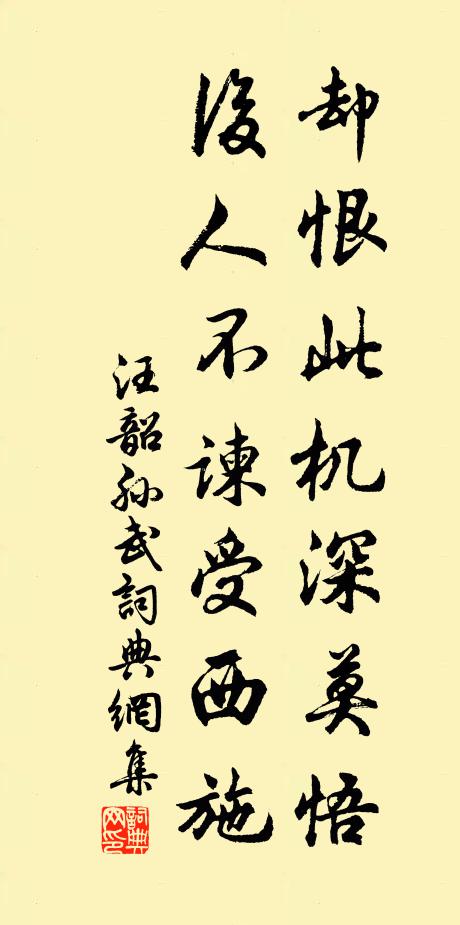 却恨此机深莫悟
後人不谏受西施
汪韶孙武詞典網集
詞典网印